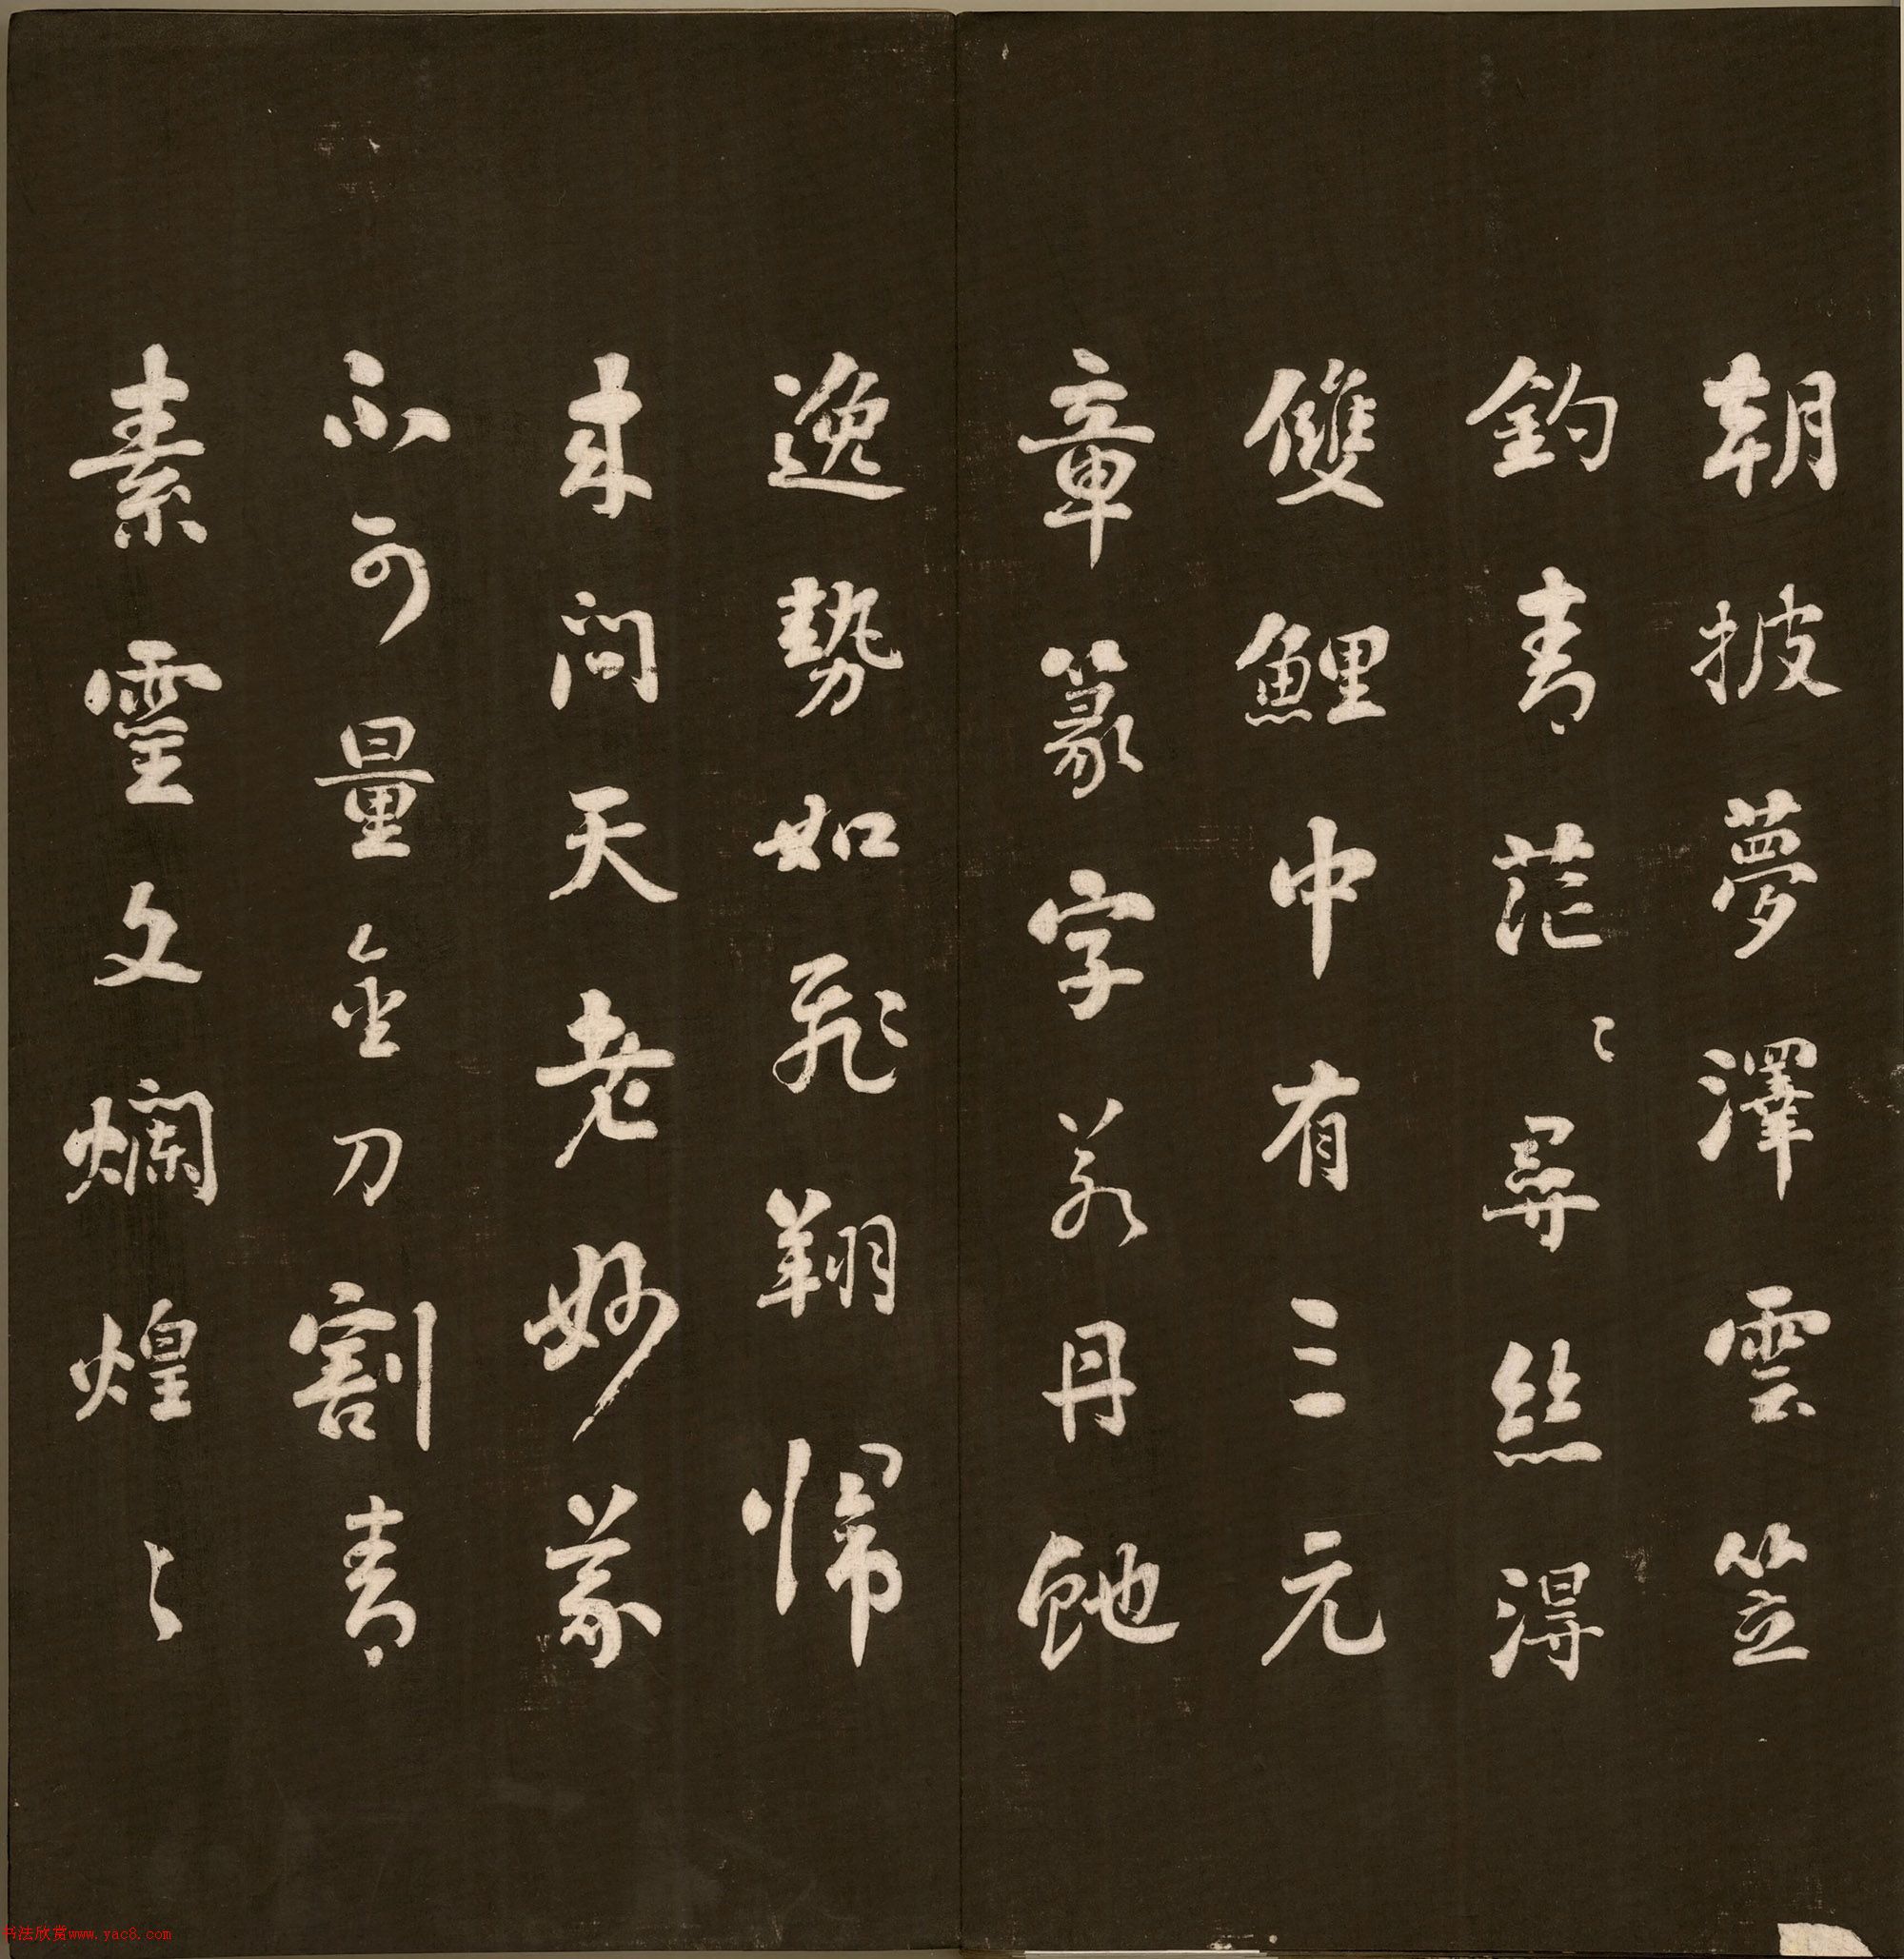 朝披夢澤雲笠
釣青茫〻尋絲得
雙鯉中有三元
章篆字若丹虵
逸勢如飛翔歸
來問天老妙義
不可量金刀割青
素靈文爛煌〻
书法欣赏www.yac8.com